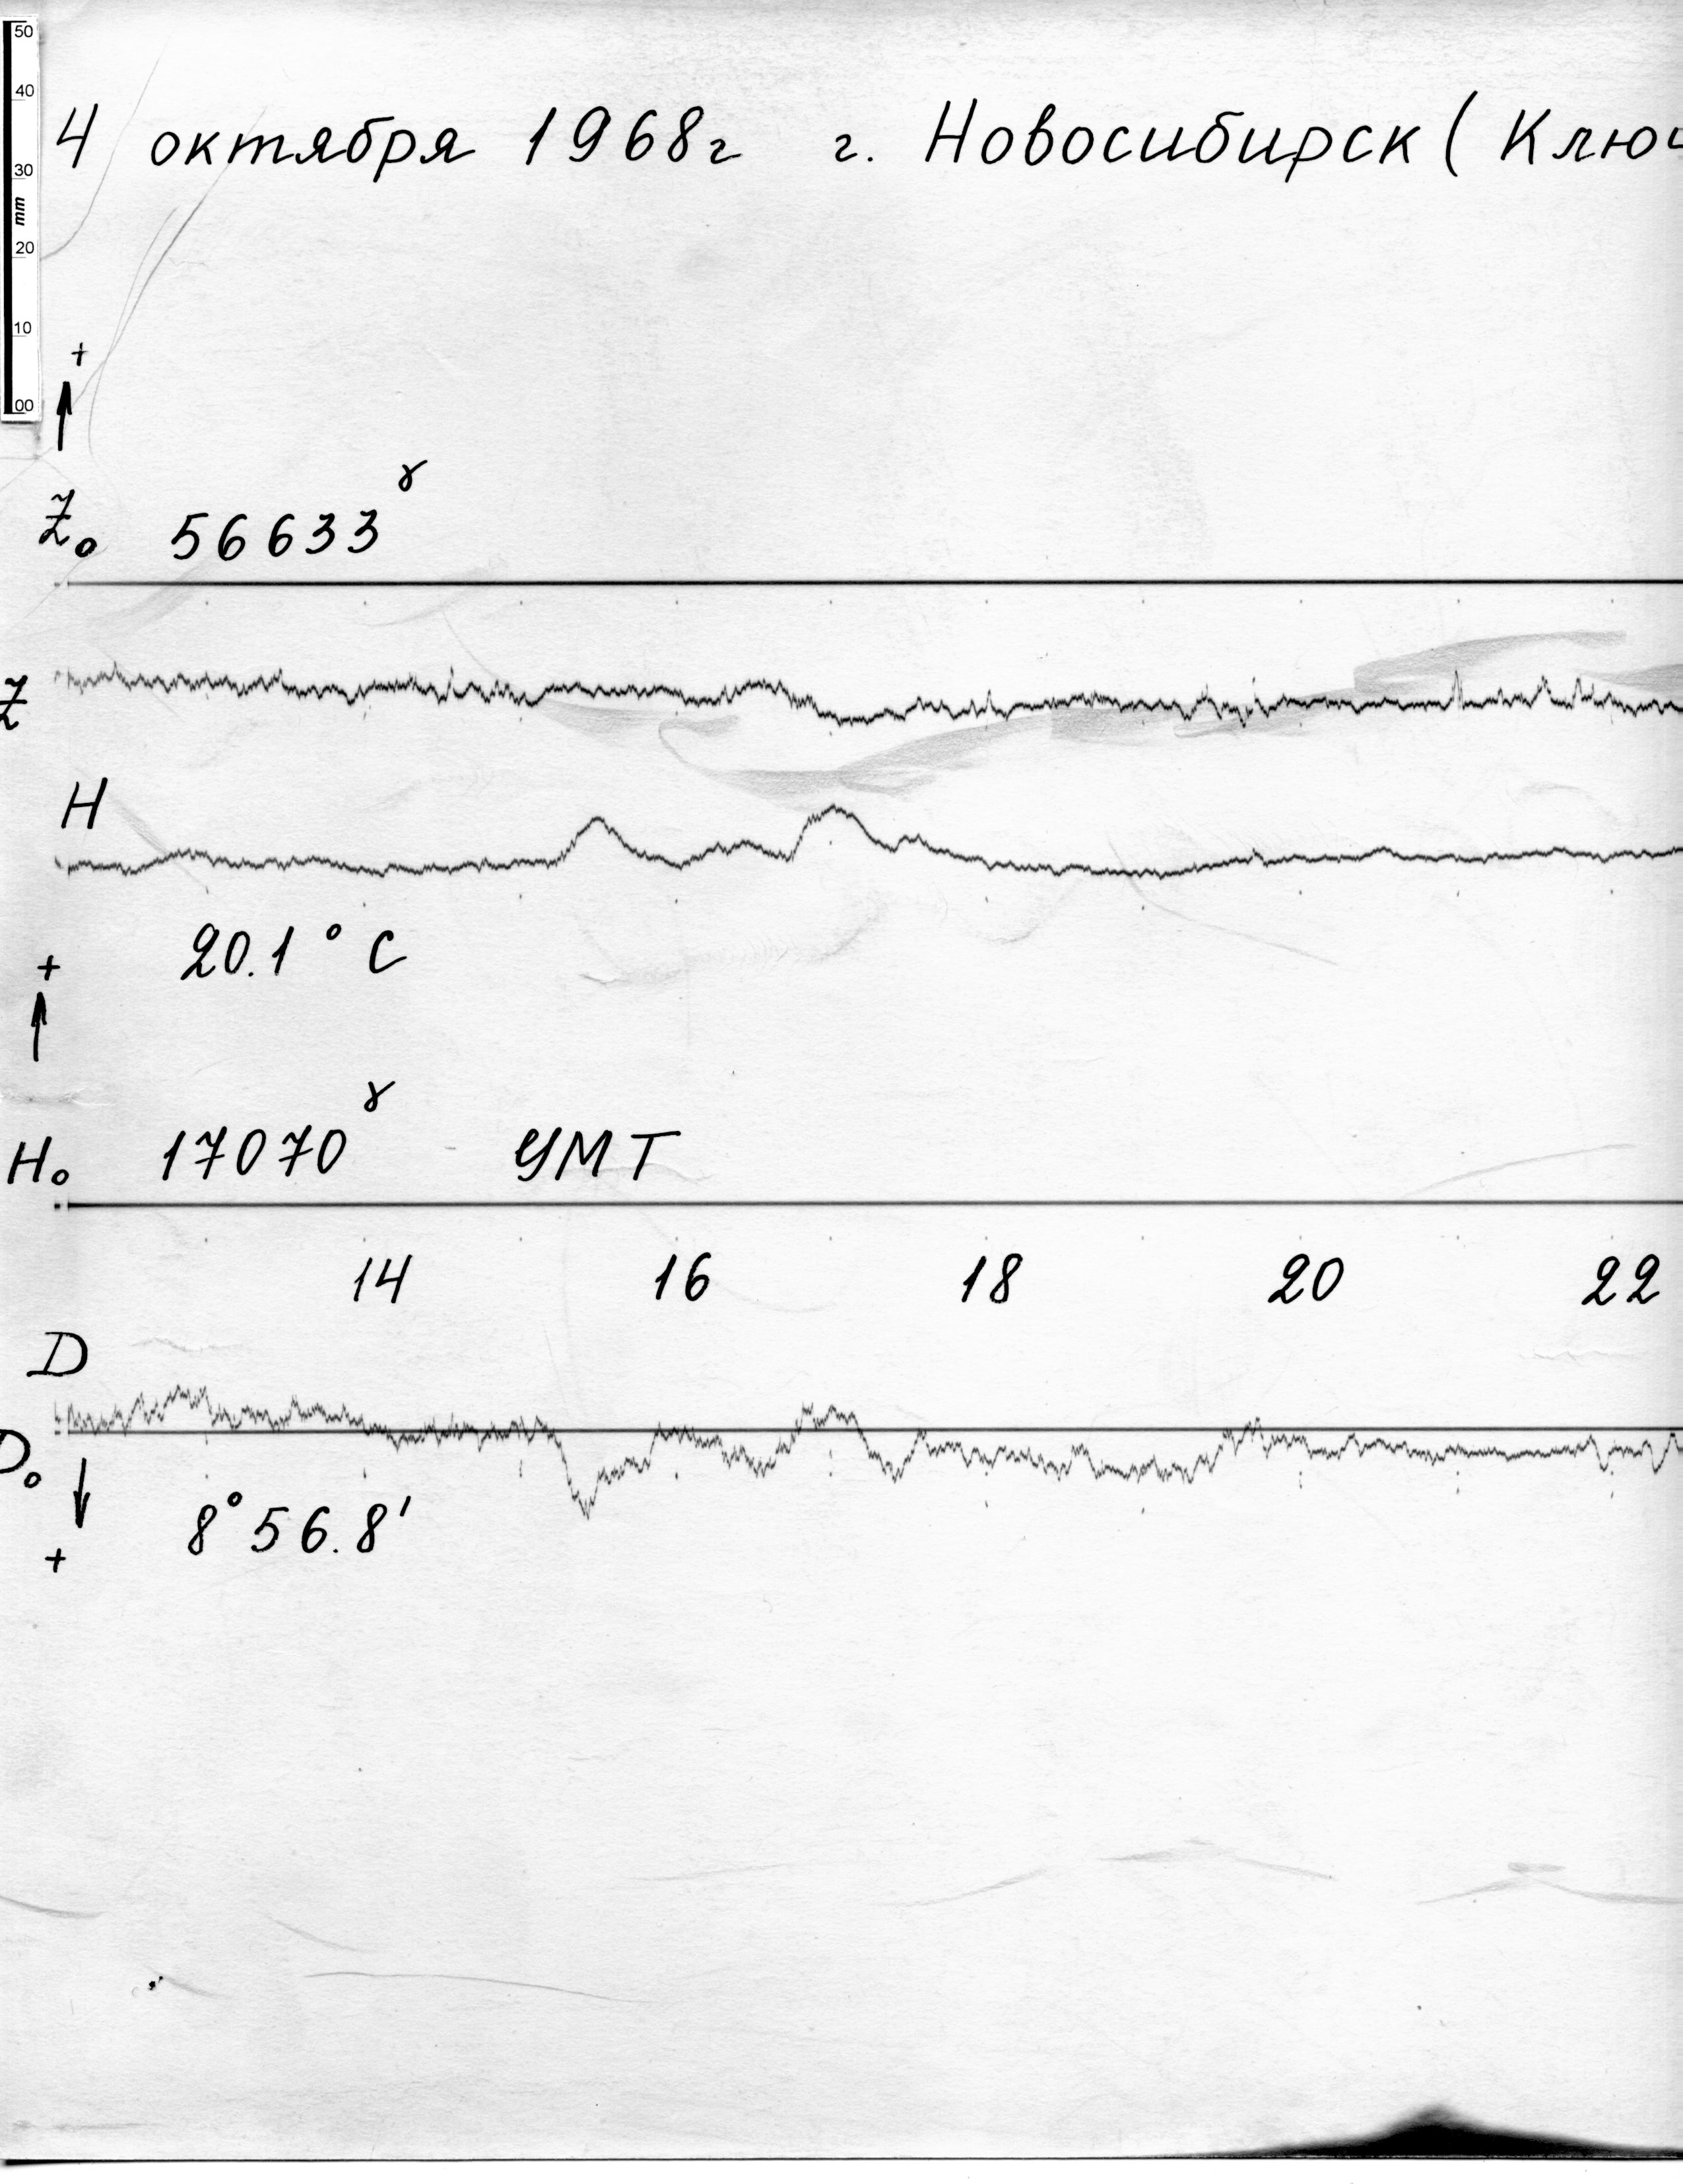 50
40
30
mm
20
10
00
4 октября 1968г г. Новосибирск ( Ключ
+
Z₀ 56633ᵞ
Z
H
20.1 ° C
+
H₀ 17070ᵞ УМТ
14 16 18 20 22
D
D₀
8° 56.8'
+